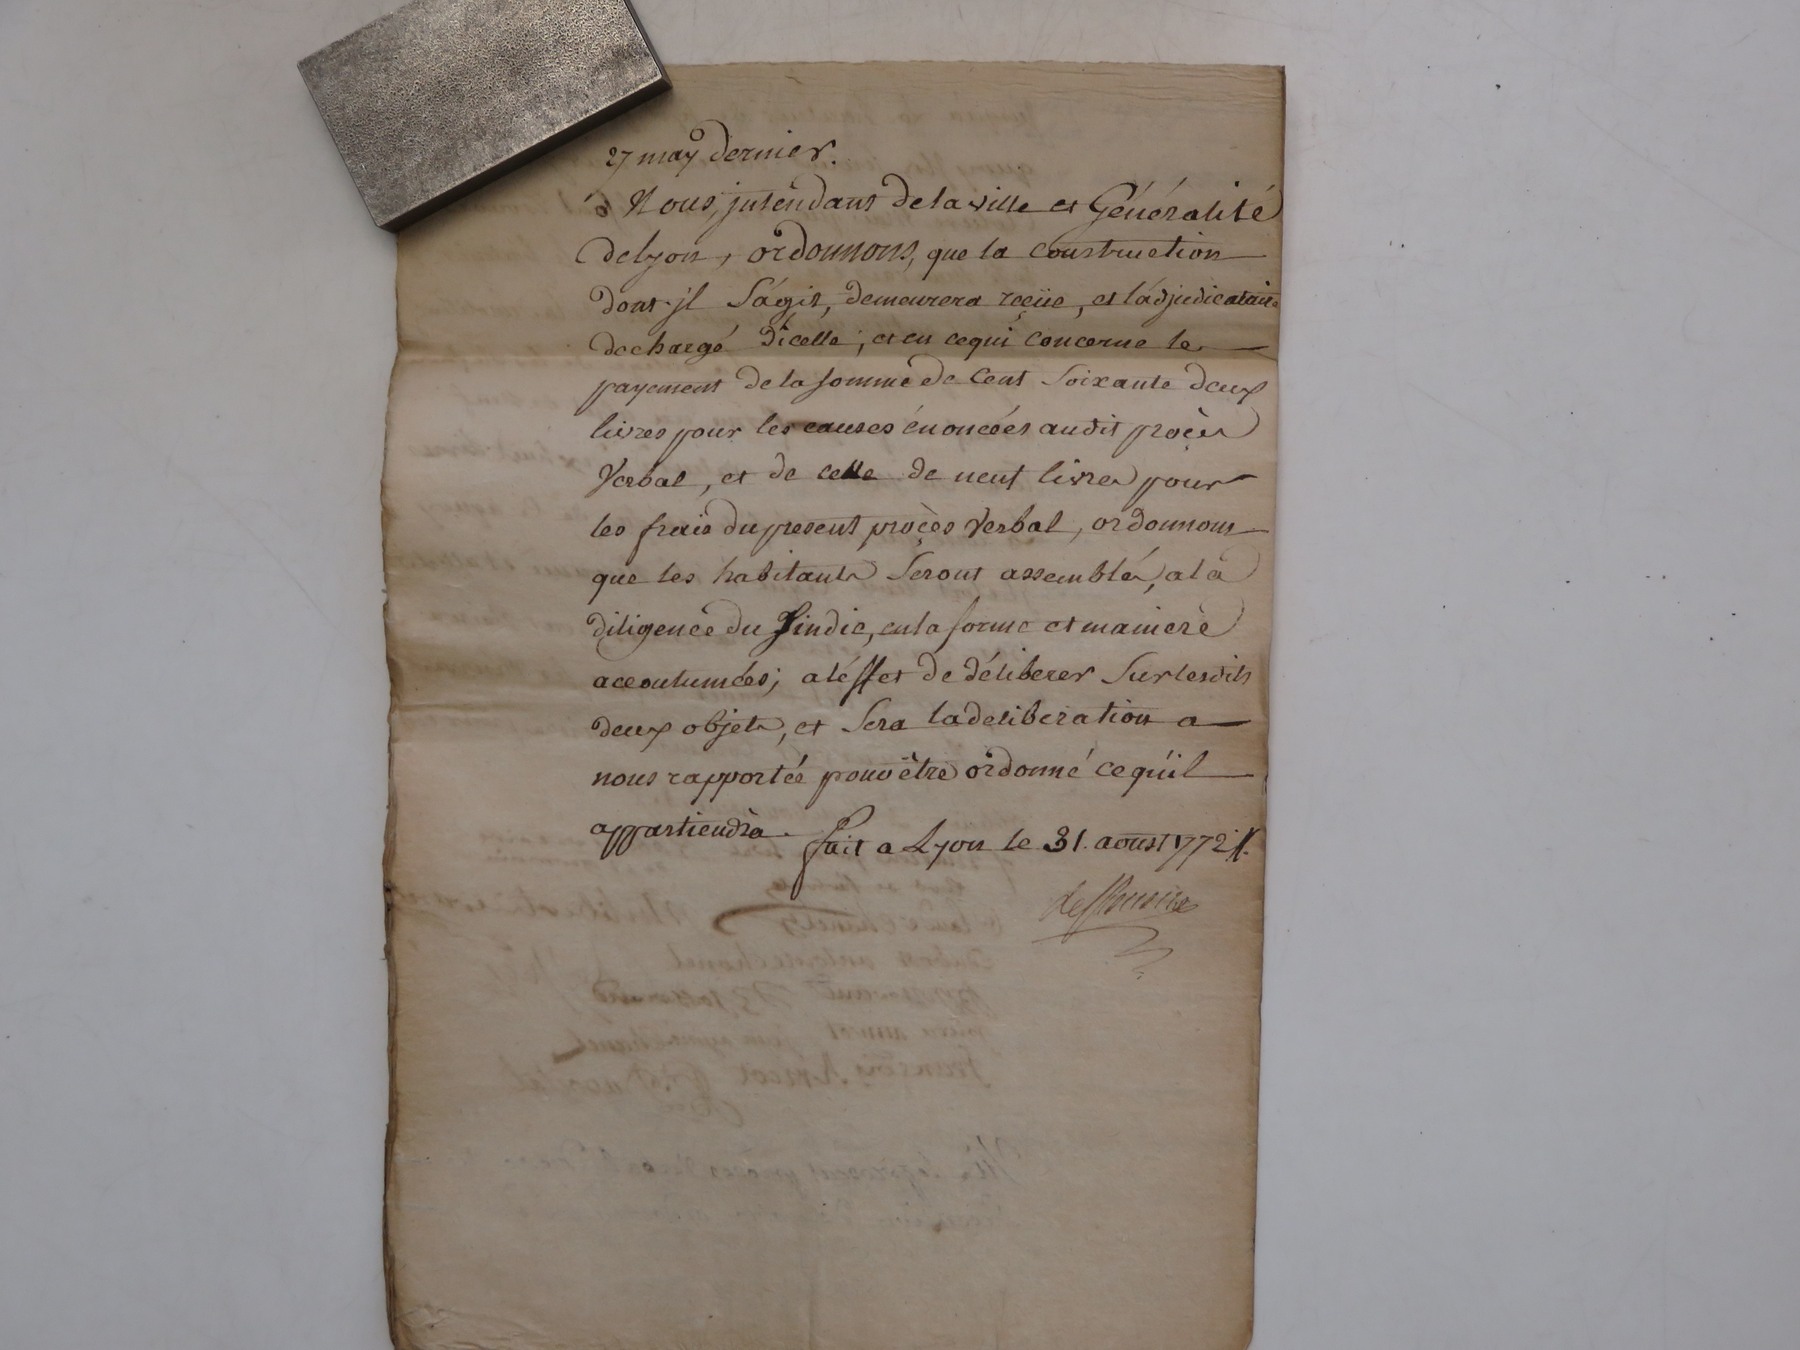 27 may dernier.
Nous, jntendant de la ville et Généralité
de lyon, ordonnons, que la construction
dont jl S'ágit, demeurera reçüe, et l'ádjudicataire
dechargé d'icelle, et en cequi concerne le
payement de la somme de Cent Soixante deux
livres pour les causes énoncées audit procès
Verbal, et de celle de neuf livres pour
les frais du present procès Verbal, ordonnons
que les habitants Seront assemblés, a la
diligence du Sindic, en la forme et maniere
accoutumées; a l'éffet de déliberer Sur lesdits
deux objets, et Sera la deliberation a
nous rapportée pour être ordonné ce qu'il
appartiendra. fait a Lyon le 31. aoust 1772